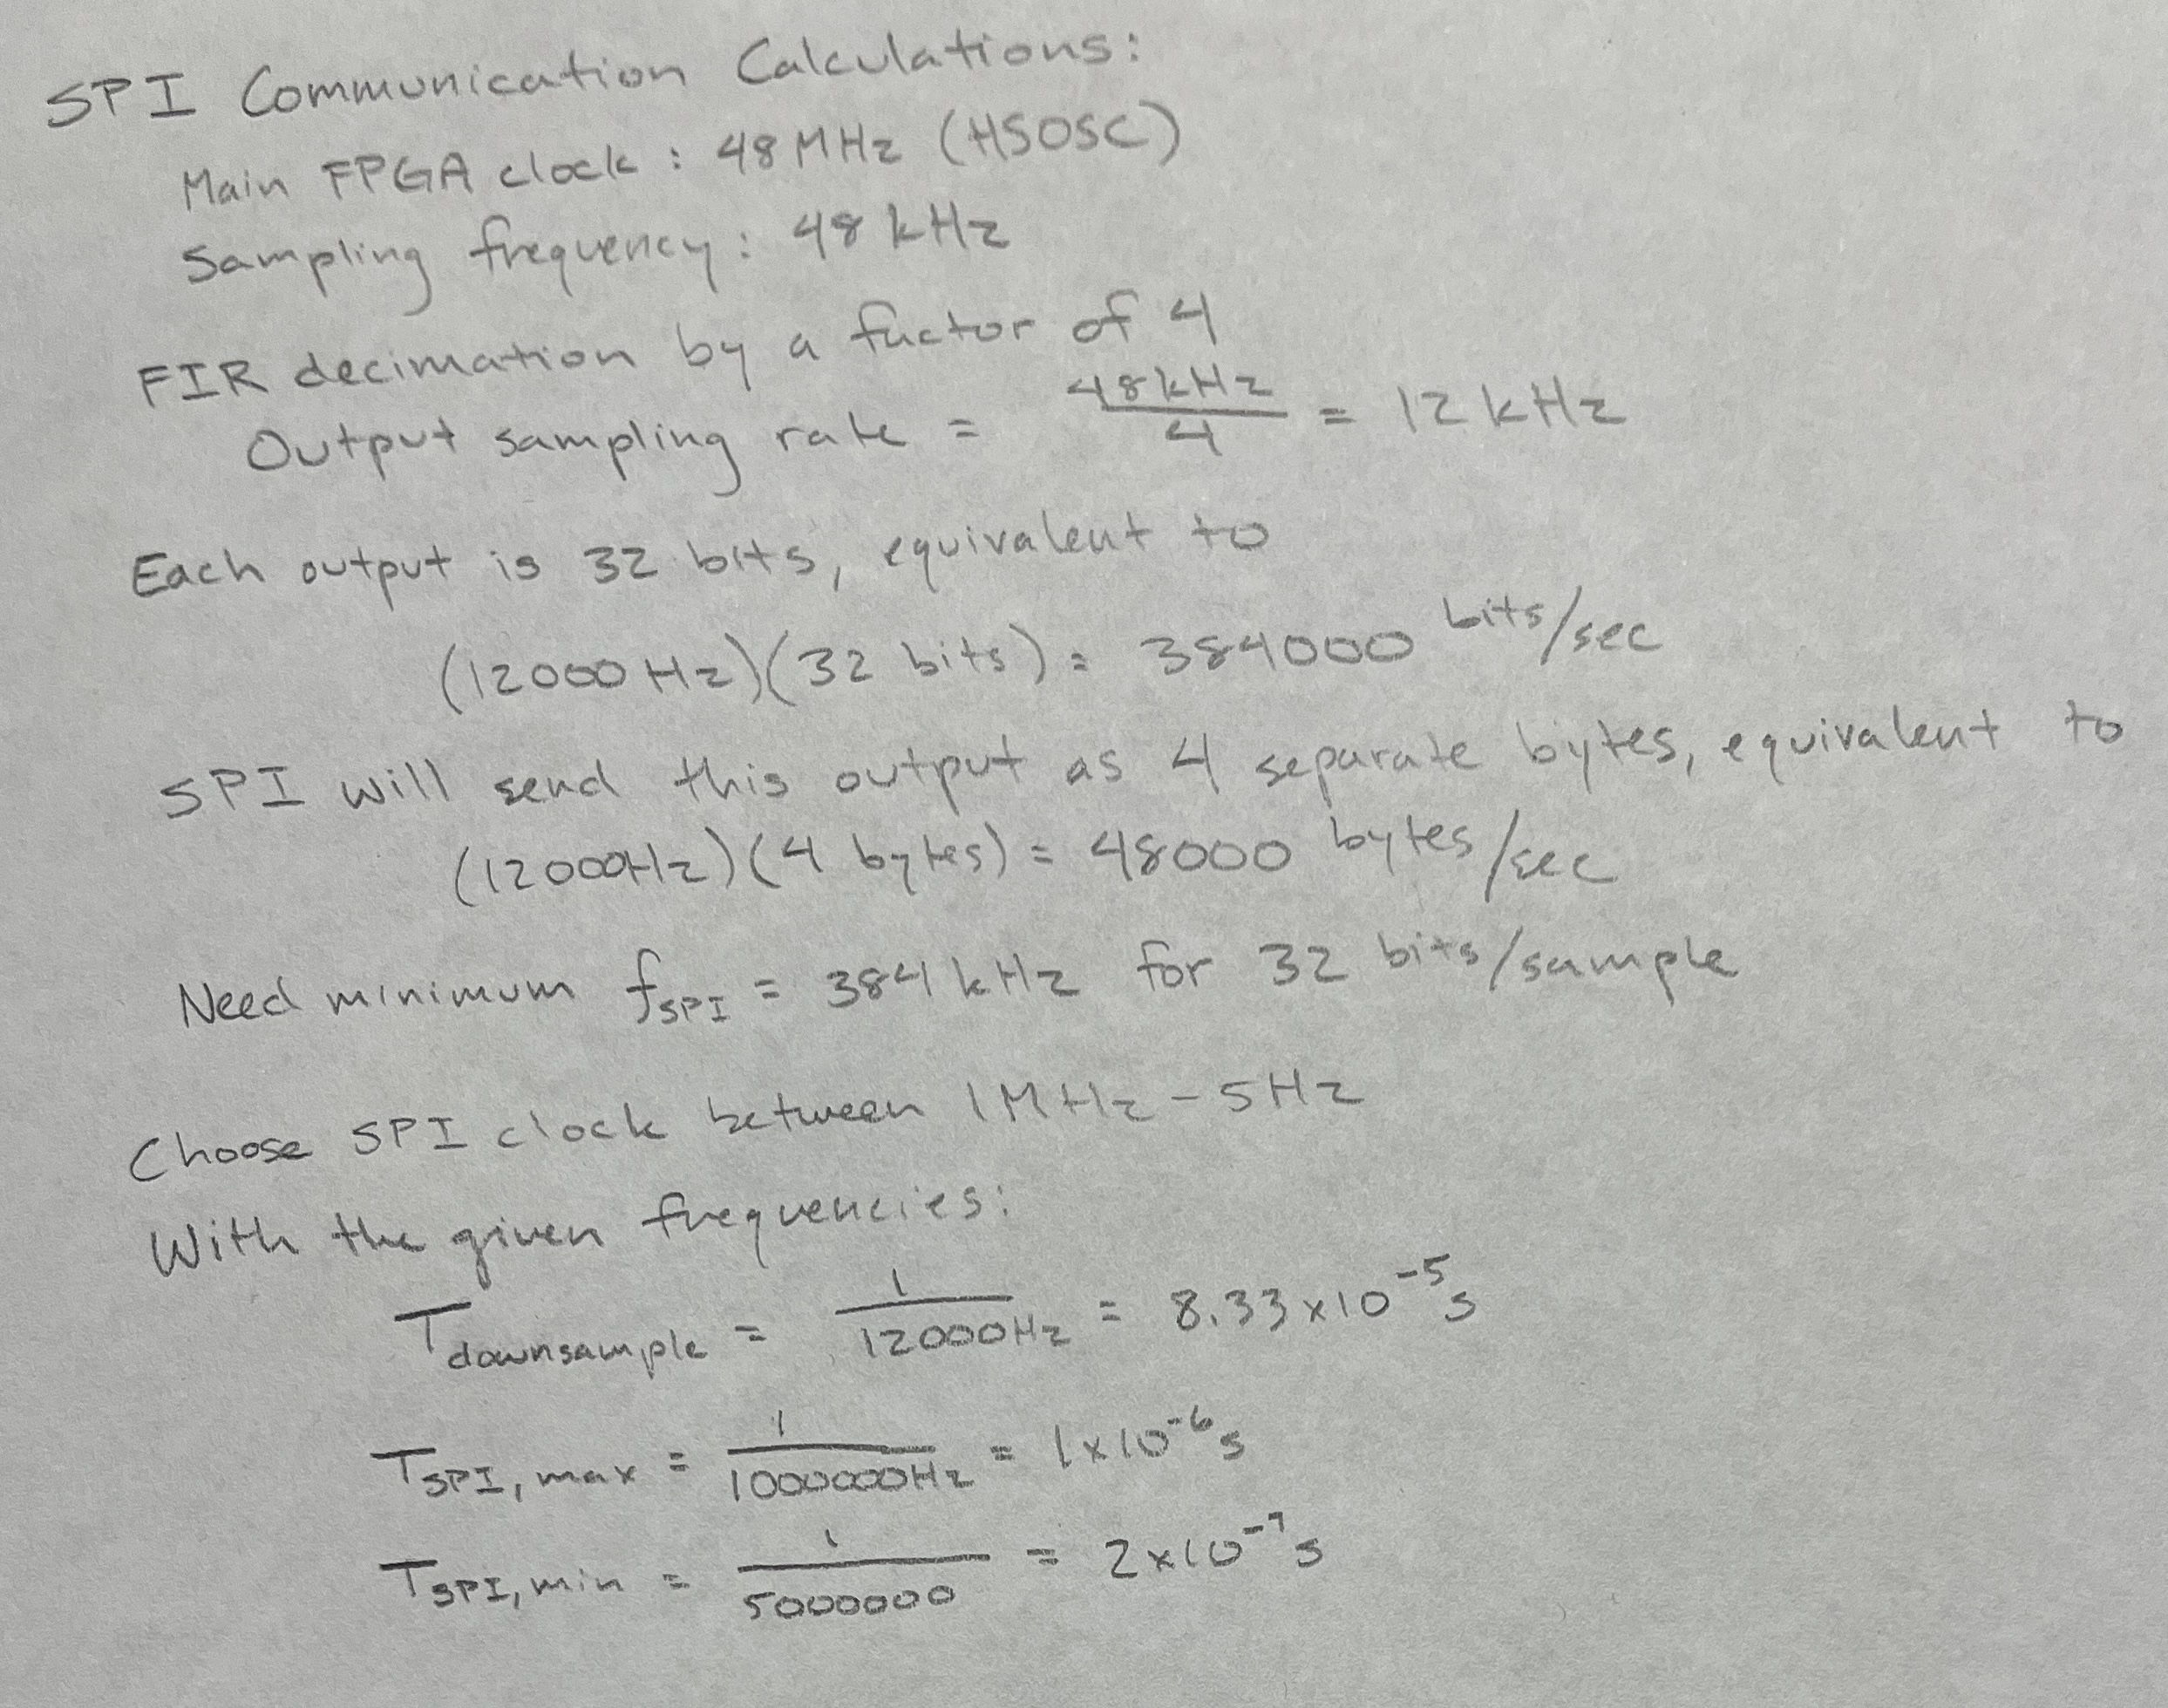 SPI Communication Calculations:
Main FPGA clock : 48 MHz (HSOSC)
Sampling frequency: 48 kHz
FIR decimation by a factor of 4
Output sampling rate = 48kHz/4 = 12 kHz
Each output is 32 bits, equivalent to
(12000 Hz)(32 bits) = 384000 bits/sec
SPI will send this output as 4 separate bytes, equivalent to
(12000Hz)(4 bytes) = 48000 bytes/sec
Need minimum f_SPI = 384 kHz for 32 bits/sample
Choose SPI clock between 1MHz - 5Hz
With the given frequencies:
T_downsample = 1/12000Hz = 8.33 x 10^-5 s
T_SPI, max = 1/1000000Hz = 1 x 10^-6 s
T_SPI, min = 1/5000000 = 2 x 10^-7 s